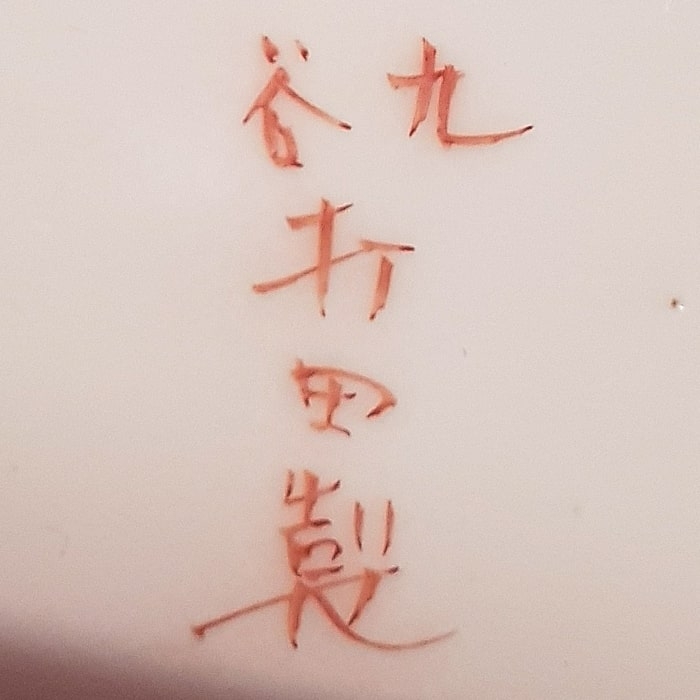 九谷
打田製